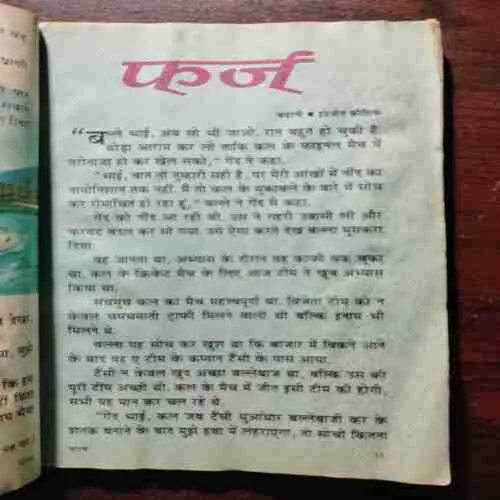 फर्ज
कहानी • इंद्रजीत कौशिक
"बल्ले भाई, अब सो भी जाओ. रात बहुत हो चुकी है.
थोड़ा आराम कर लो ताकि कल के फाइनल मैच में
तरोताजा हो कर खेल सको," गेंद ने कहा.
"भाई, बात तो तुम्हारी सही है, पर मेरी आंखों में नींद का
नामोनिशान तक नहीं. मैं तो कल के मुकाबले के बारे में सोच
कर रोमांचित हो रहा हूं," बल्ले ने गेंद से कहा.
गेंद को नींद आ रही थी. उस ने गहरी उबासी ली और
करवट बदल कर सो गया. उसे ऐसा करते देख बल्ला मुसकरा
दिया.
वह जानता था, अभ्यास के दौरान वह काफी थक चुका
था. कल के क्रिकेट मैच के लिए आज टीम ने खूब अभ्यास
किया था.
सचमुच कल का मैच महत्त्वपूर्ण था. विजेता टीम को न
केवल चमचमाती ट्राफी मिलने वाली थी बल्कि इनाम भी
मिलने थे.
बल्ला यह सोच कर खुश था कि बाजार में बिकने आने
के बाद वह ए टीम के कप्तान टैंसी के पास आया.
टैंसी न केवल खुद अच्छा बल्लेबाज था, बल्कि उस की
पूरी टीम अच्छी थी. कल के मैच में जीत इसी टीम की होगी,
सभी यह मान कर चल रहे थे.
"गेंद भाई, कल जब टैंसी धुआंधार बल्लेबाजी कर के
शतक बनाने के बाद मुझे हवा में लहराएगा, तो सोचो कितना
देखा.
मुझे
कि हम